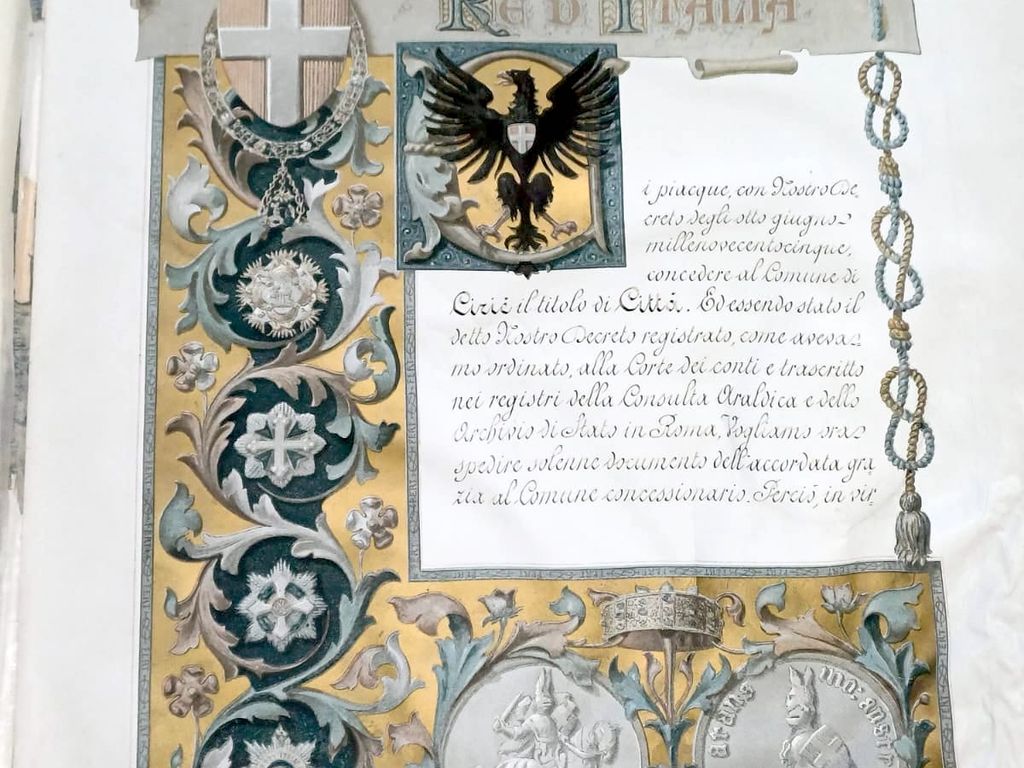 Re d'Italia
i piacque, con Nostro De-
creto degli otto giugno
millenovecentocinque,
concedere al Comune di
Ciriè il titolo di Città. Ed essendo stato il
detto Nostro Decreto registrato, come aveva-
mo ordinato, alla Corte dei conti e trascritto
nei registri della Consulta Araldica e dello
Archivio di Stato in Roma, Vogliamo ora
spedire solenne documento dell'accordata gra-
zia al Comune concessionario. Perciò, in vir-